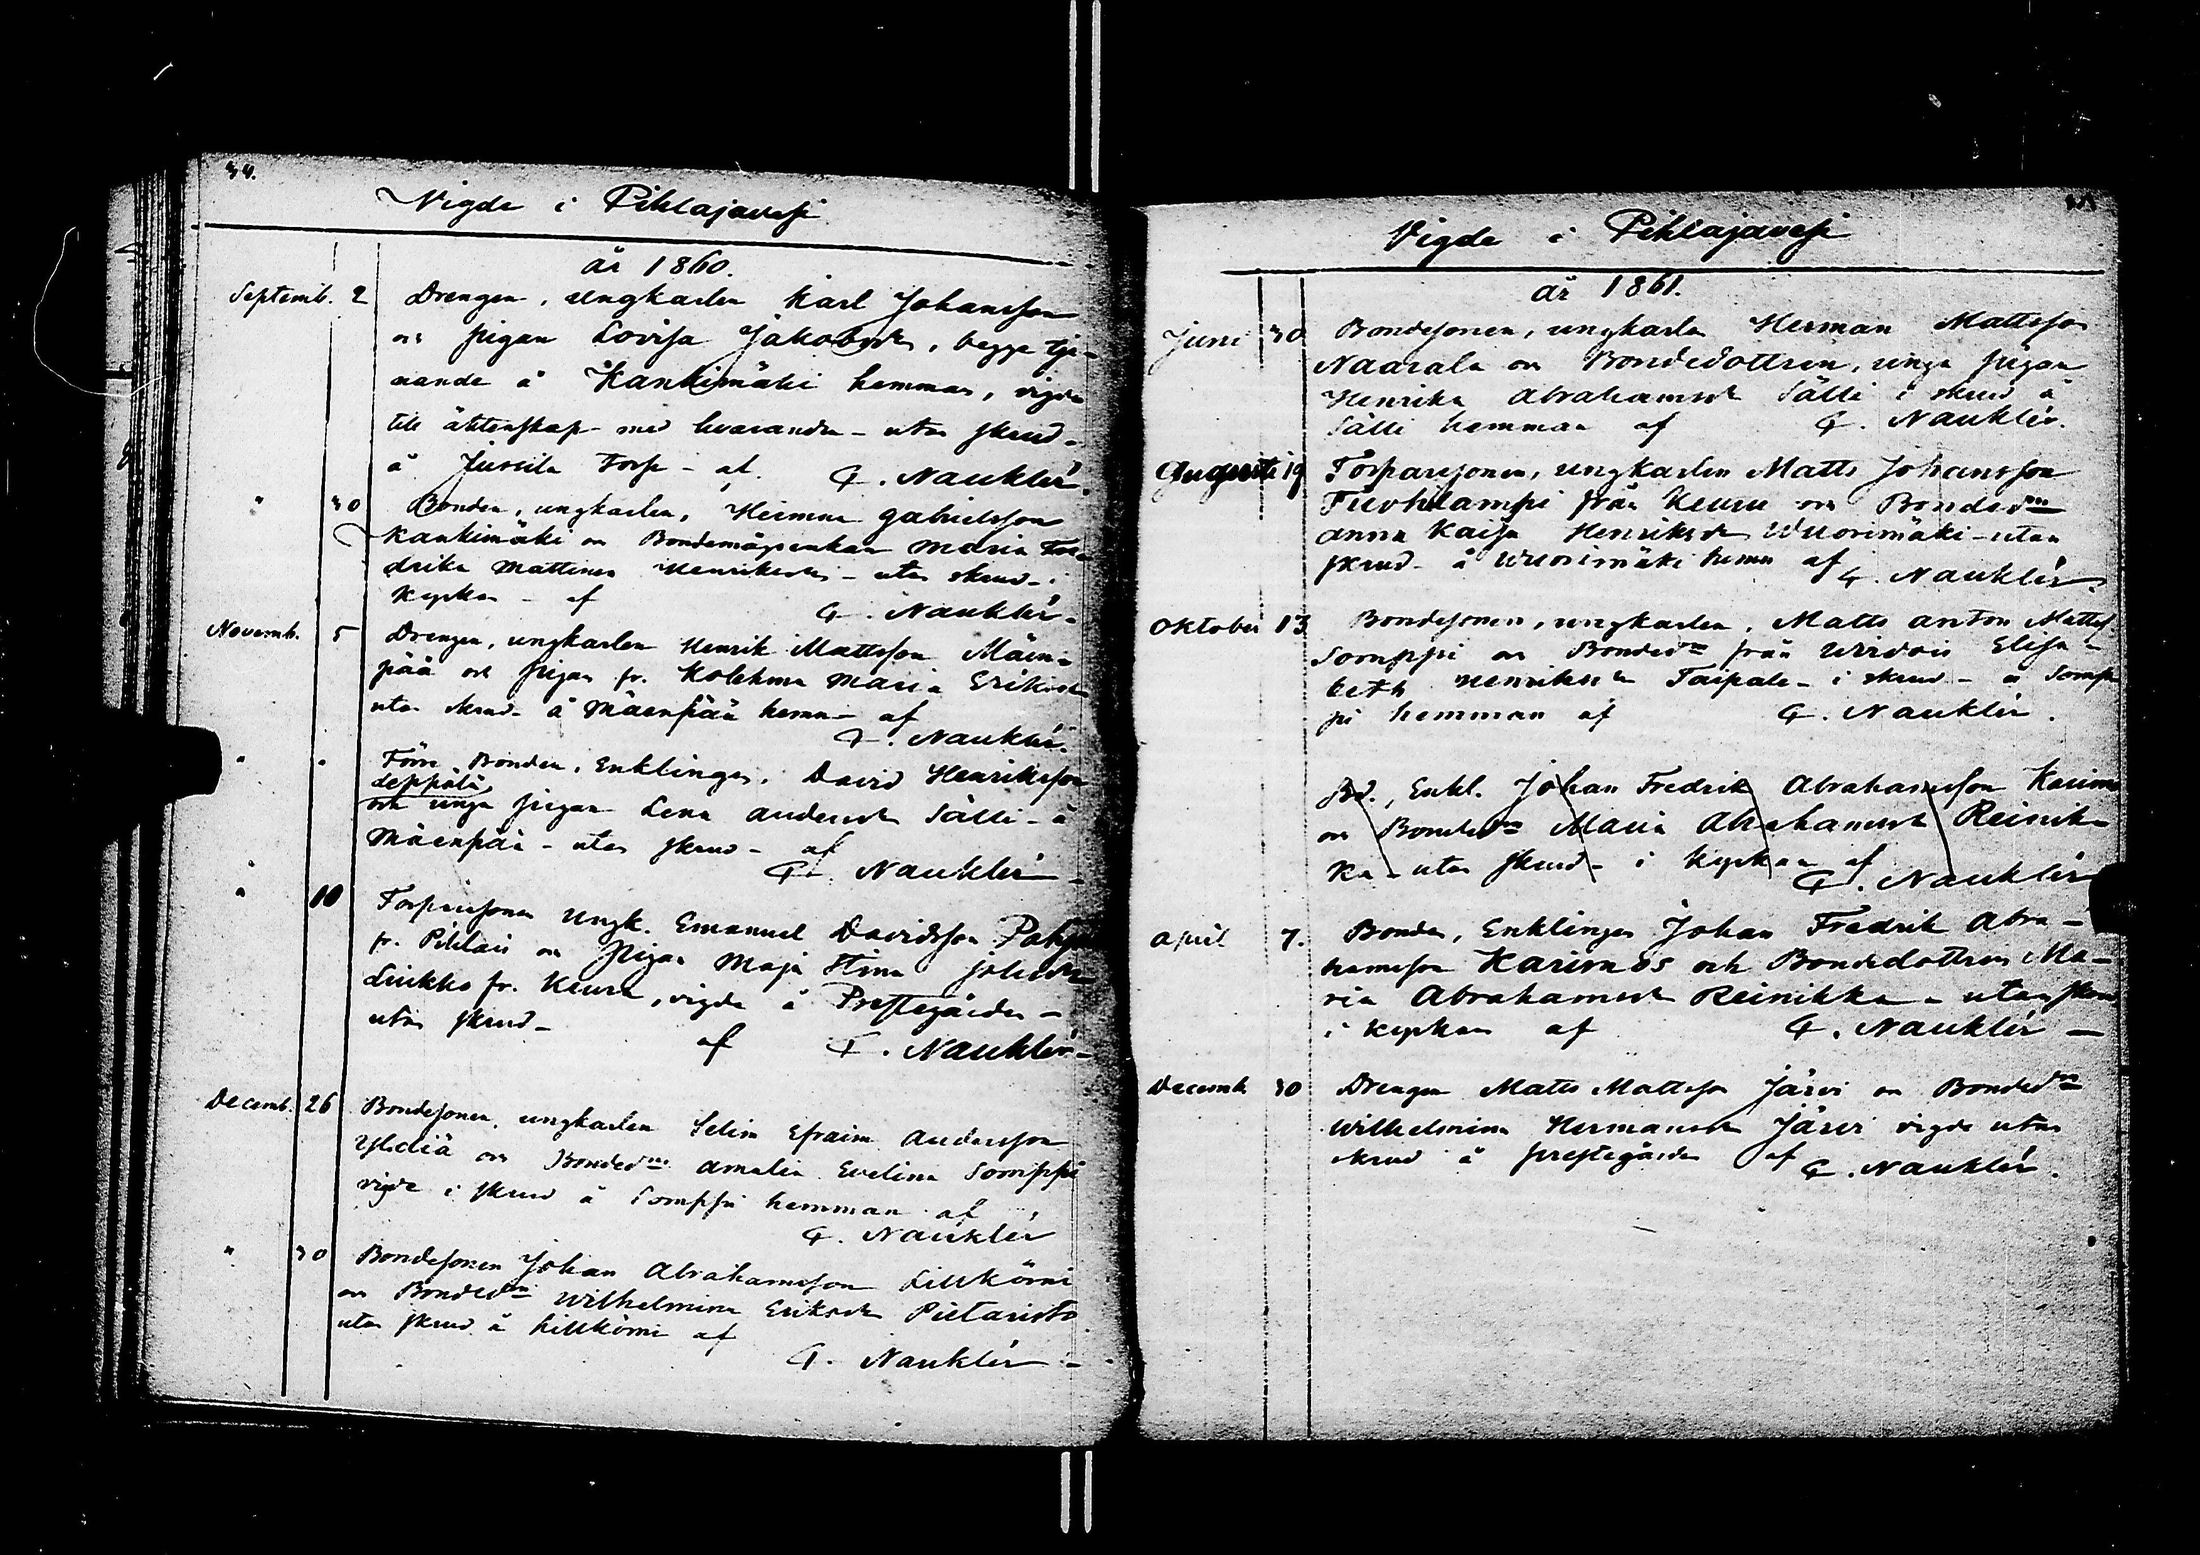 34.
Vigde i Pihlajavesi
år 1860.
Septemb. 2 Drengen, ungkarlen Karl Johansson
oc pigan Lovisa Jakobsdr, begge tje-
nande å Kankimäki hemman, vigde
till äktenskap med hvarandra - utan skrud -
å Jussila Torp - af G. Nauklér.
" 30 Bonden, ungkarlen, Herman Gabrielsson
Kankimäki oc Bondemågsenkan Maria Fre-
drika Mattsdr Henriksdr - utan skrud - i
Kyrkan - af G. Nauklér.
Novemb. 5 Drengen, ungkarlen Henrik Mattsson Mäen-
pää och pigan fr. Kolkhma Maria Eriksdr
utan skrud å Mäenpää hemm - af
G. Nauklér.
" " Förre Bonden, Enklingen, David Henriksson
Seppälä
och unga pigan Lena Andersdr Sälli - å
Mäenpää - utan skrud - af
G. Nauklér -
" 10 Torparesonen Ungk. Emanuel Davidsson
fr. oc pigan Maja Stina Johsdr
Liukko fr. Keuru, vigde å Prestegården -
utan skrud - af G. Nauklér -
Decemb. 26 Bondesonen, ungkarlen Selim Efraim Andersson
Yliliä oc Bondedn Amalia Evelina Somppi
vigde i skrud å Somppi hemman af
G. Nauklér
" 30 Bondesonen Johan Abrahamsson Lillkömi
oc Bondedn Wilhelmina Eriksdr Pietaristo
utan skrud å Lillkömi af
G. Nauklér -
Vigde i Pihlajavesi
år 1861.
Juni 30 Bondesonen, ungkarln Herman Mattsson
Naarala oc Bondedottren, unga pigan
Henrika Abrahamsdr Sälli i skrud å
Sälli hemman af G. Nauklér.
Augusti 19 Torparesonen, ungkarlen Matts Johansson
Tuohilampi från Keuru oc Bondedn
Anna Kajsa Henriksdr Wuorimäki - utan
skrud - å Wuorimäki hemm af G. Nauklér.
Oktober 13 Bondesonen, ungkarlen, Matts Anton Mattss
Somppi oc Bondedn från Wirdois Elisa-
beth Henriksdr Taipale - i skrud - å Somp
pi hemman af G. Nauklér.
Bd., Enkl. Johan Fredrik Abrahamsson Karim
oc Bondedn Maria Abrahamsdr Reinik-
ka - utan skrud - i Kyrkan af
G. Nauklér
April 7. Bonden, Enklingen Johan Fredrik Abra-
hamsson Karimos och Bondedottren Ma-
ria Abrahamsdr Reinikka - utan skrud
i Kyrkan af G. Nauklér -
Decemb 30 Drengen Matts Mattsson Järvi oc Bondedn
Wilhelmina Hermansdr Järvi vigde utan
skrud å prestegården af G. Nauklér.